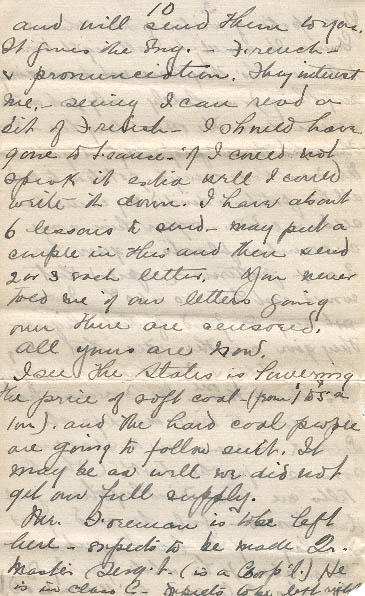 10
and will send them to you.
It gives the Eng. - French -
& pronunciation. They interest
me, - seeing I can read a
bit of French - I should have
gone to France - if I could not
speak it extra well I could
write it down. I have about
6 lessons to send - may put a
couple in this and then send
2 or 3 each letter. You never
told me if our letters going
over there are censored.
All yours are now.
I see the States is lowering
the price of soft coal - (from $1 to 5 a
ton). and the hard coal people
are going to follow suit. It
may be as well we did not
get our full supply.
Mr. Foreman is to be left
here - expects to be made Qr.
Master Serg't. (is a Corp'l.) He
is in class C - expects to be left with